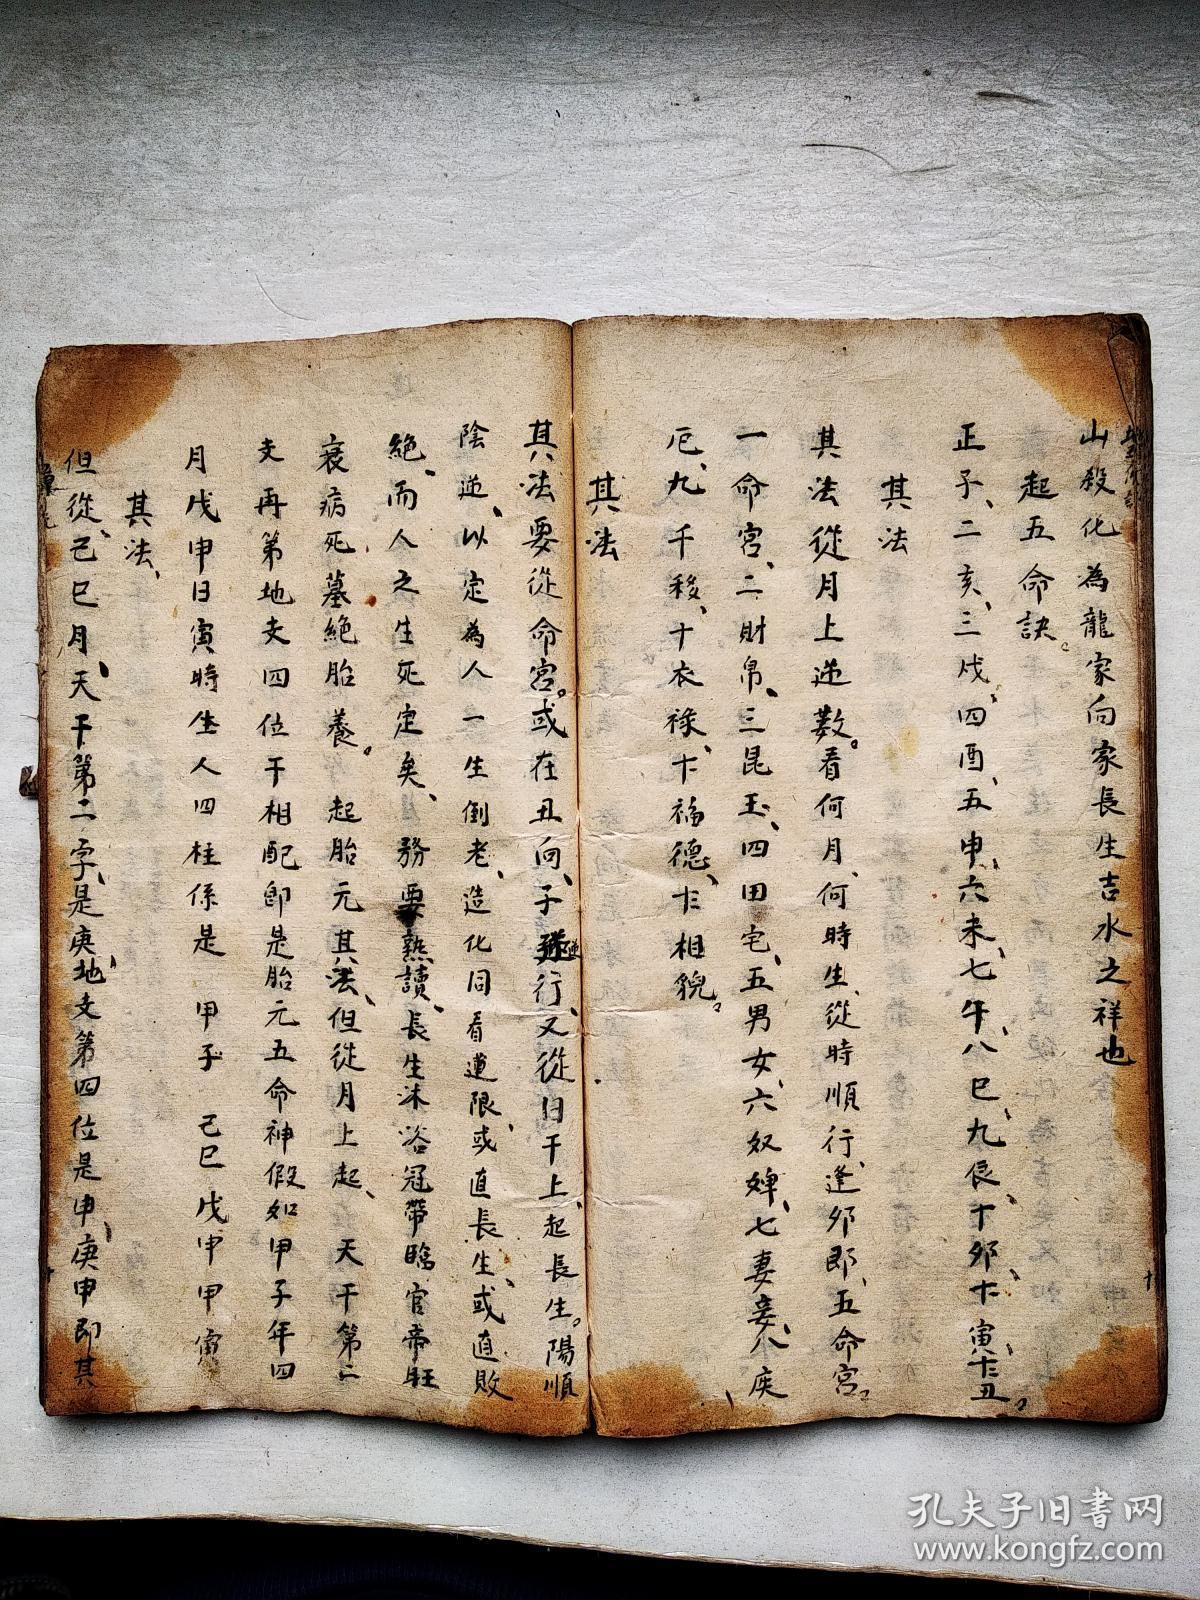 山殺化為龍家向家長生吉水之祥也
起五命訣。
正子、二亥、三戍、四酉、五申、六未、七午、八巳、九辰、十夘、卞寅、卞丑。
其法
其法從月上逆數。看何月、何時生、從時順行、逢夘即、五命宮。
一命宮、二財帛、三昆玉、四田宅、五男女、六奴婢、七妻妾、八疾
厄、九千移、十衣祿、卞福德、卞相貌。
其法
其法要從命宮。或在丑向、子逆行、又從日干上、起長生。陽順
陰逆、以定為人一生倒老、造化同看運限、或直長生、或直敗
絕、而人之生死定矣、務要熟讀、長生沐浴冠帶臨官帝旺
衰病死墓絕胎養。起胎元其法、但從月上起、天干第二
支再第地支四位干相配即是胎元五命神假如甲子年四
月戊申日寅時生人四柱係是 甲子 己巳 戊申 甲寅
其法、
但從、己巳月、天干第二字、是庚、地支第四位是申、庚申即其
孔夫子旧书网
www.kongfz.com